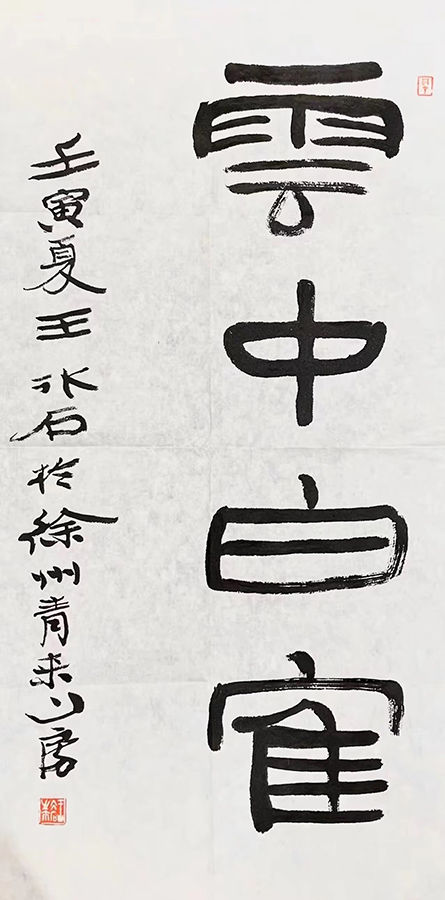 雲中白寉
壬寅夏王冰石於徐州青来山房